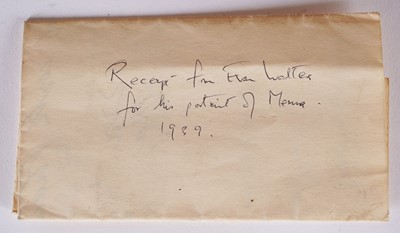 Receipt from Evan Walters
for his portrait of Menna.
1939.